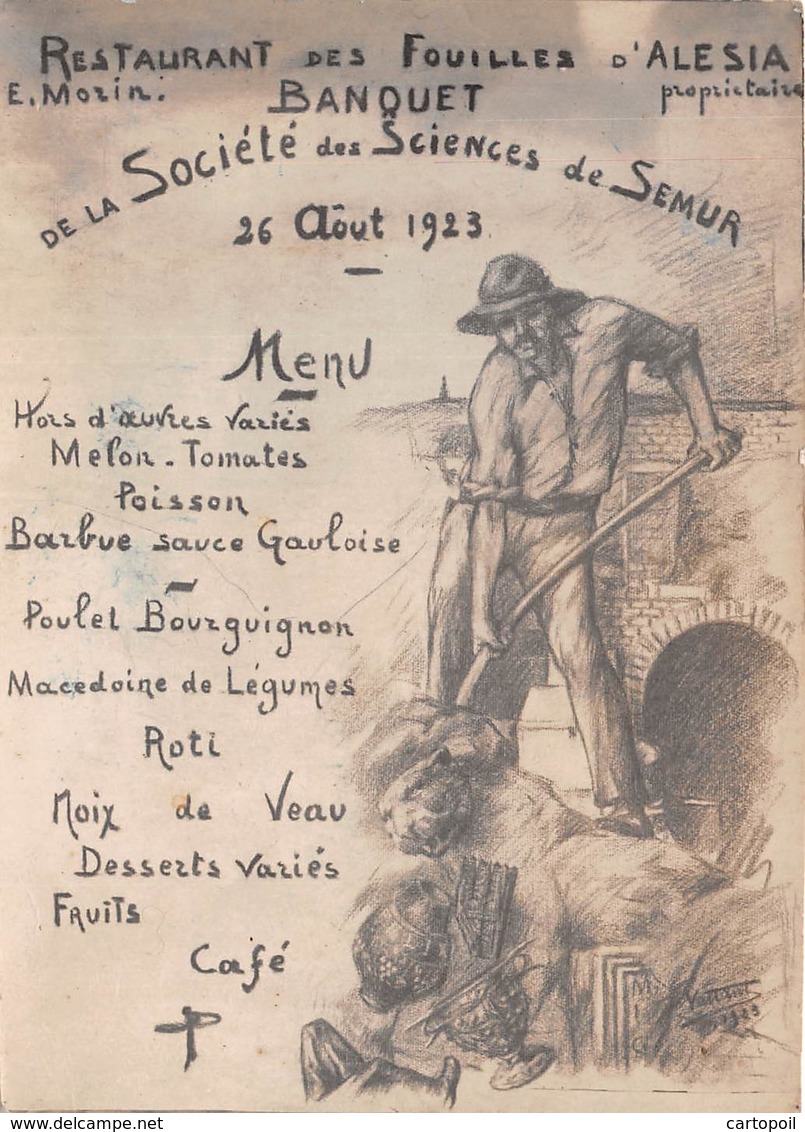 RESTAURANT DES FOUILLES D'ALESIA
E. Morin. BANQUET propriétaire
DE LA Société des Sciences de SEMUR
26 Aôut 1923
Menu
Hors d'œuvres variés
Melon - Tomates
Poisson
Barbue sauce Gauloise
Poulet Bourguignon
Macedoine de Légumes
Roti
Noix de Veau
Desserts variés
FRUITS
Café
1923
cartopoil